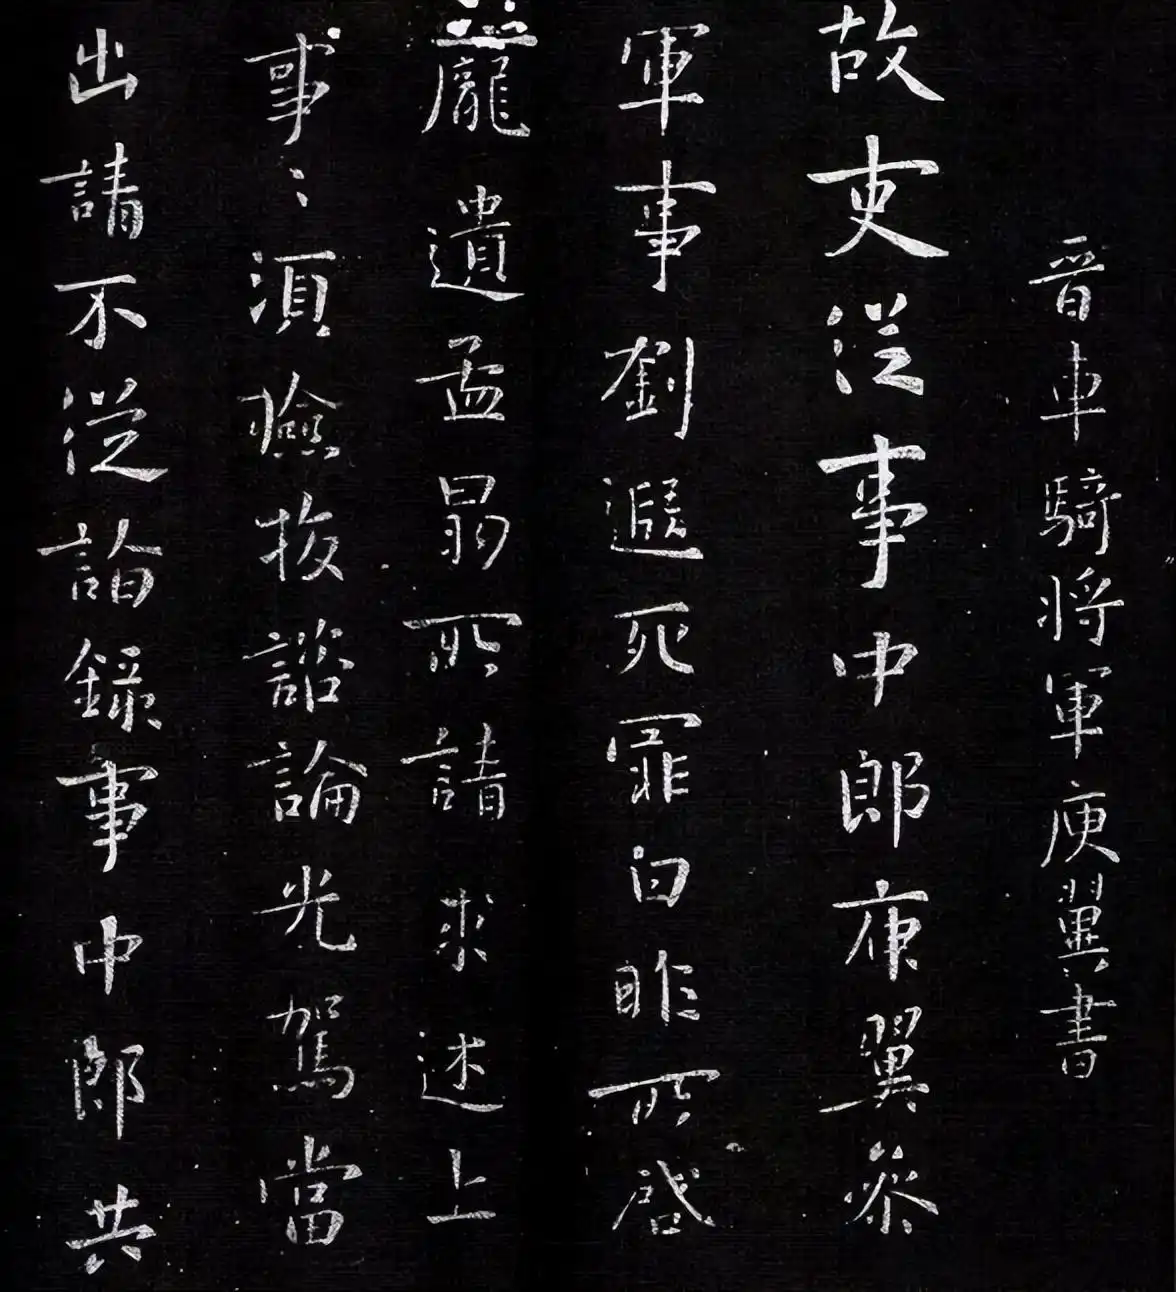 晉車騎將軍庾翼書
故吏從事中郎庾翼參
軍事劉遐死罪白昨所啓
龐遺孟昜所請求述上
事〻須撿挍諮論光駕當
出請不從詣錄事中郎共